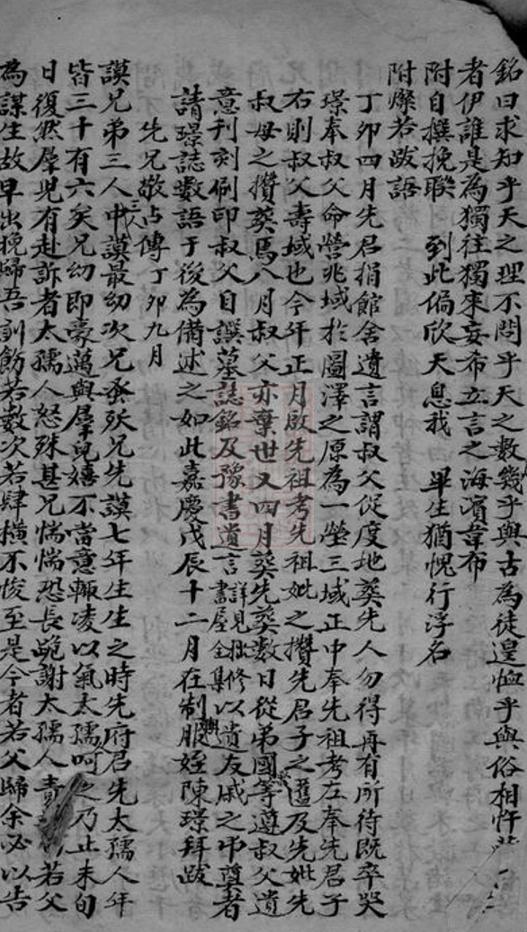 銘曰求知乎天之理不問乎天之數幾乎與古為徒遑恤乎與俗相忤
者伊誰是為獨往獨來妄布立言之海濱韋布
附自撰挽聯　到此偏欣天息我　畢生猶愧行浮名
附燦若跋語
丁卯四月先君捐館舍遺言謂叔父從度地葬先人勿得再有所待既卒哭
璟奉叔父命營兆域於圖澤之原為一塋三域正中奉先祖考左奉先君子
右則叔父壽域也今年正月啟先祖考先祖妣之攢先君子之匶及先妣先
叔母之攢葬焉八月叔父亦棄世又四月葬先葬數日從弟國等遵叔父遺
意刊刻刷印叔父自譔墓誌銘及豫書遺言詳見拙修書屋全集以遺友戚之弔奠者
請璟誌數語于後為備述之如此嘉慶戊辰十二月在制服姪陳璟拜跋
先兄敬占傳丁卯九月
謨兄弟三人中謨最幼次兄蚤殀兄先謨七年生生之時先府君先太孺人年
皆三十有六矣兄幼即豪邁與羣兒嬉不當意輒凌以氣太孺呵之乃止未旬
日復然羣兒有赴訴者太孺人怒殊甚兄惴惴恐長跪謝太孺人責若父
為謀生故早出晚歸吾訓飭若數次若肆橫不悛至是今者若父歸余必以告